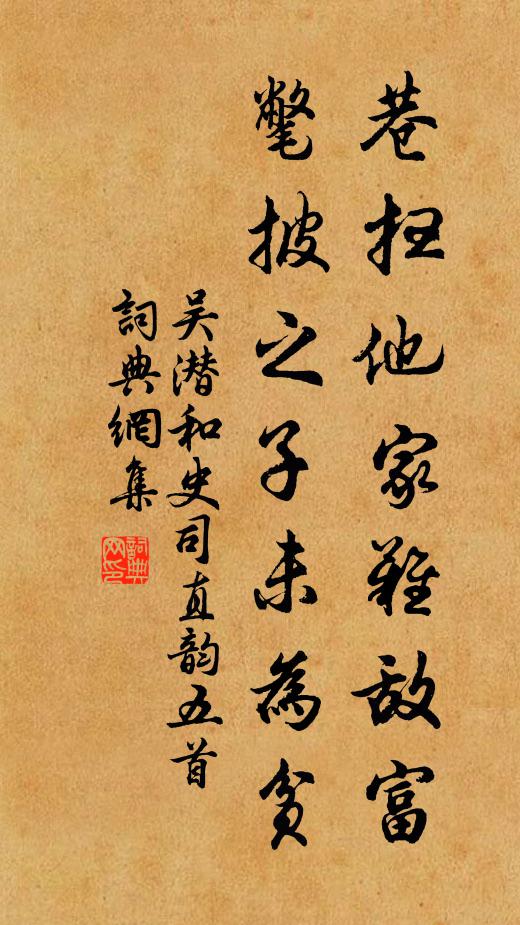 巷扫他家难敌富
氅披之子未为贫
吴潜和史司直韵五首
詞典網集
詞典网印